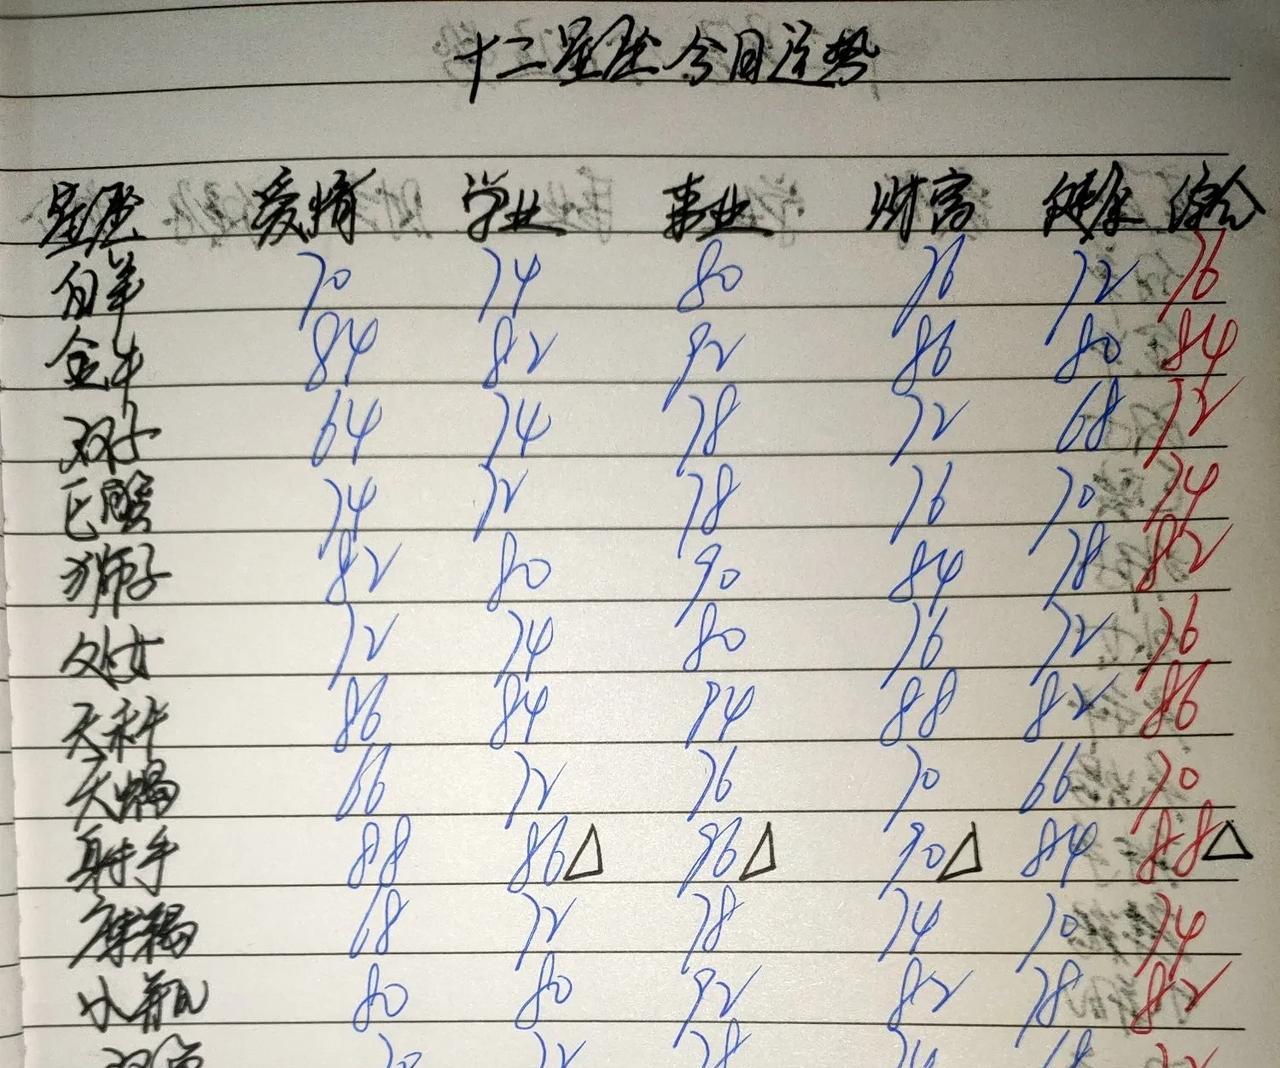 十二星座今日运势
星座 爱情 学业 事业 财富 健康 综合
白羊 70 74 80 76 72 76
金牛 84 82 92 86 80 84
双子 64 74 78 72 68 72
巨蟹 74 72 78 76 70 74
狮子 82 80 90 84 78 82
处女 72 74 80 76 72 76
天秤 86 84 94 88 82 86
天蝎 66 72 76 70 66 70
射手 88 86△ 96△ 90△ 84 88△
摩羯 68 72 78 74 70 74
水瓶 80 80 92 82 78 82